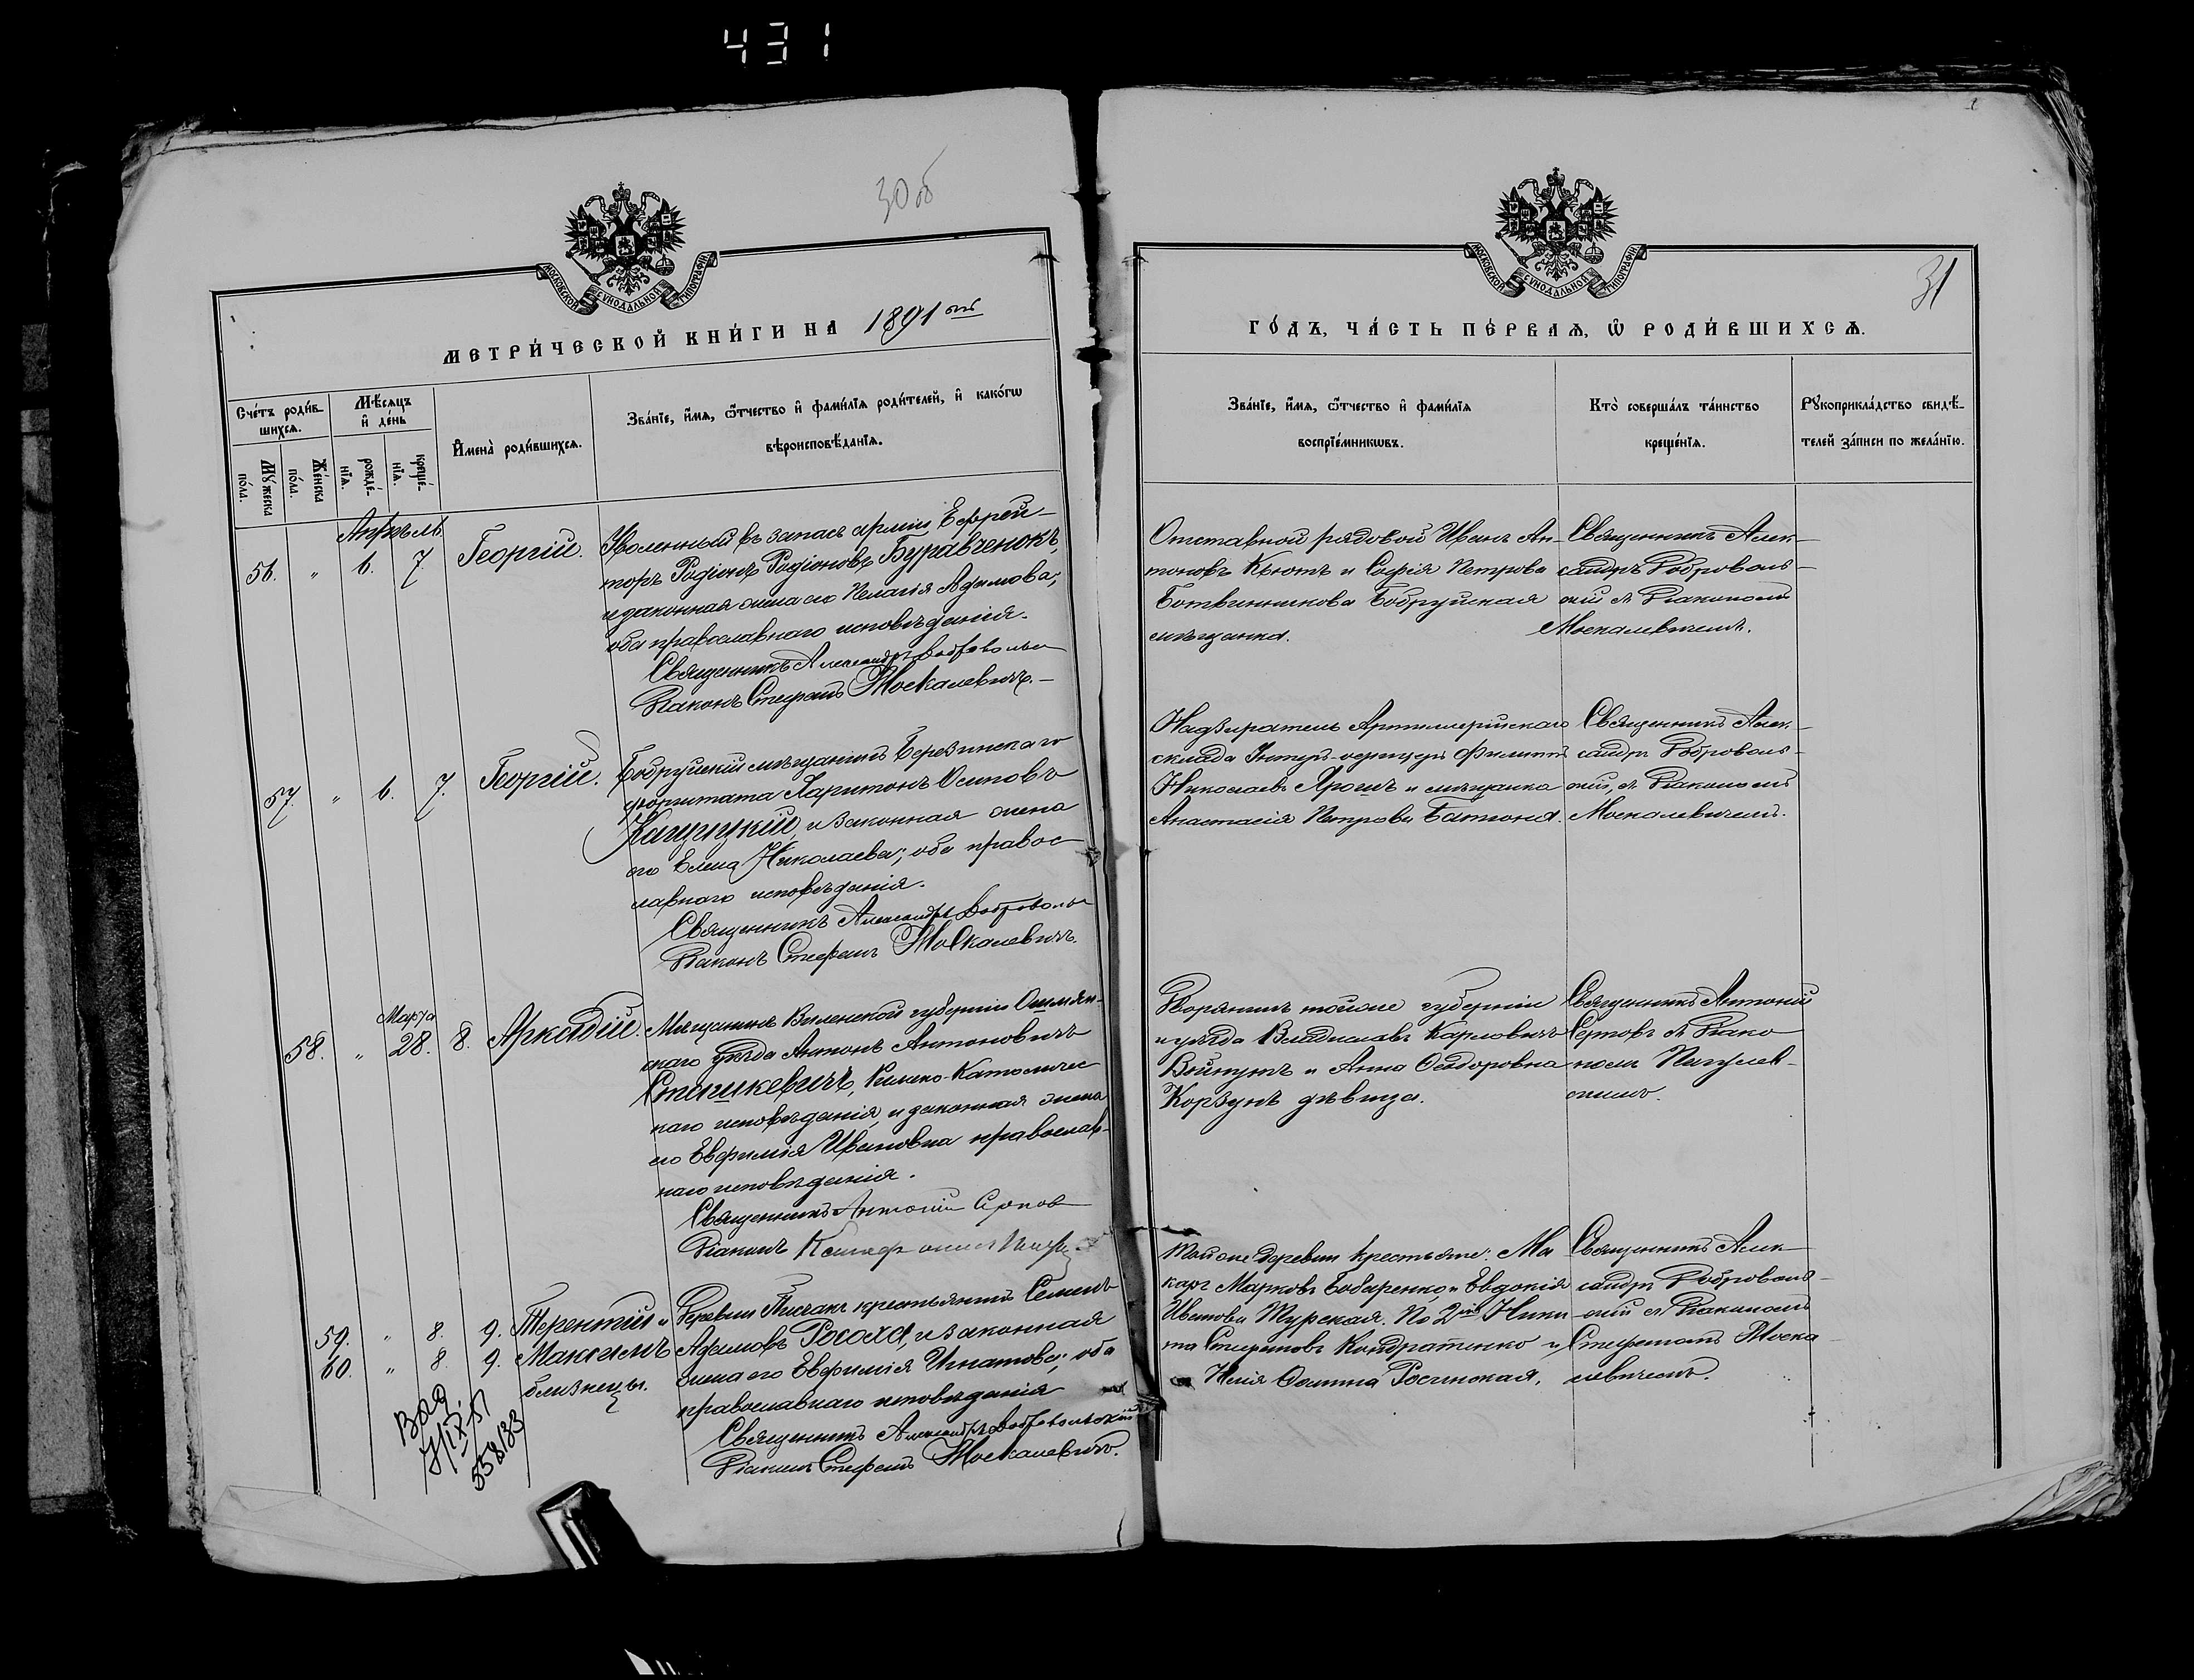 431
30об
МОСКОВСКОЙ СѴНОДАЛЬНОЙ ТИПОГРАФІИ
МЕТРИ́ЧЕСКОЙ КНИ́ГИ НА 1891 ый
Сче́тъ роди́в-
шихсѧ.
Мѣсѧцъ
и҆ де́нь
Мꙋ́жеска
по́ла.
Же́нска
по́ла.
рожде́-
нїѧ.
креще́-
нїѧ.
И҆мена̀ роди́вшихсѧ.
Зва́нїе, и҆́мѧ, ѻ҆́тчество и҆ фами́лїѧ роди́телей, и҆ како́гѡ
вѣроисповѣ́данїѧ.
Апрѣль
56. " 6. 7. Георгій.
Уволенный въ запасъ арміи Ефрей-
торъ Родіонъ Родіоновъ Буравченокъ,
и законная жена его Пелагія Адамова;
оба православнаго исповѣданія.
Священникъ Александръ Доброволь
Діаконъ Стефанъ Москалевичъ.
57. " 6. 7. Георгій.
Бобруйскій мѣщанинъ Березинскаго
форштата Харитонъ Осиповъ
и законная жена
его Елена Николаева; оба правос
лавнаго исповѣданія.
Священникъ Александръ Доброволь
Діаконъ Стефанъ Москалевичъ.
Марта
58. " 28. 8. Аркадій.
Мѣщанинъ Виленской губерніи Ошмян-
скаго уѣзда Антонъ Антоновичъ
Сташкевичъ, Римско-Католичес
каго исповѣданія, и законная жена
его Евфимія Ивановна православ-
наго исповѣданія.
Священникъ Антоній
Діаконъ
59. " 8. 9. Терентій и
60. " 8. 9. Максимъ
близнецы.
Деревни крестьянинъ Семенъ
Адамовъ Росоха, и законная
жена его Евфимія Игнатова; оба
православнаго исповѣданія
Священникъ Александръ Добровольскій
Діаконъ Стефанъ Москалевичъ.
IX-51
558183
31
МОСКОВСКОЙ СѴНОДАЛЬНОЙ ТИПОГРАФІИ
ГО́ДЪ, ЧА́СТЬ ПЕ́РВАѦ, Ѽ РОДИ́ВШИХСѦ.
Зва́нїе, и҆́мѧ, ѻ҆́тчество и҆ фами́лїѧ
воспрїе́мникѡвъ.
Кто̀ соверша́лъ та́инство
креще́нїѧ.
Рꙋкоприкла́дство свидѣ́-
телей за́писи по жела́нїю.
Отставной рядовой Иванъ Ан-
тоновъ Кнютъ и Софія Петрова
Ботвинникова Бобруйская
мѣщанка.
Священникъ Алек-
сандръ Доброволь-
скій съ Діакономъ
Москалевичемъ.
Надзиратель Артиллерійскаго
склада Унтеръ-офицеръ Филиппъ
Николаевъ Ярошъ и мѣщанка
Анастасія Петрова
Священникъ Алек-
сандръ Доброволь-
скій, съ Діакономъ
Москалевичемъ.
Дворянинъ тойже губерніи
и уѣзда Владиславъ Карловичъ
Войнутъ и Анна Ѳеодоровна
Корзунъ дѣвица.
Священникъ Антоній
Серповъ съ Діако
номъ Пигулев-
скимъ.
Тойже деревни крестьяне: Ма
каръ Марковъ и Евдокія
Иванова Турская. По 2му Ники
та Стефановъ Кондратенко и
Осипова
Священникъ Алек-
сандръ Доброволь-
скій съ Діакономъ
Стефаномъ Моска
левичемъ.